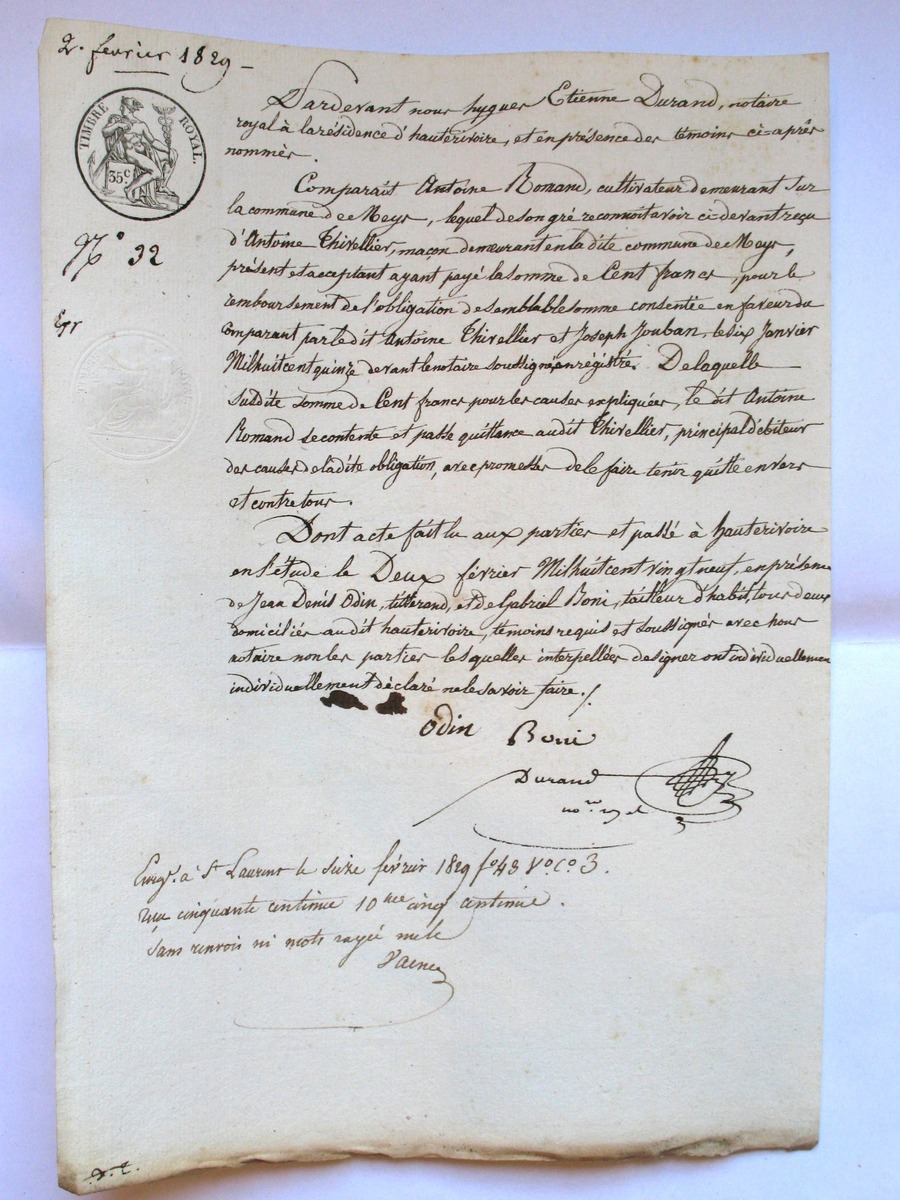 2. février 1829 –
TIMBRE ROYAL.
35c
N° 32
Exp
Pardevant nous hygues Etienne Durand, notaire
royal à la résidence d'hauterivoire, et en présence des témoins ci=après
nommés.
Comparait Antoine Romand, cultivateur demeurant sur
la commune de Meys, lequel de son gré reconnoit avoir ci-devant reçu
d'Antoine Thivellier, maçon demeurant en la dite commune de Meys,
présent et acceptant ayant payé la somme de Cent francs, pour le
remboursement de l'obligation de semblable somme consentie en faveur du
Comparant par le dit Antoine Thivellier et Joseph Jouban, le six Janvier
Mil huit cent quinze devant le notaire soussigné, enrégistré. De laquelle
susdite somme de Cent francs pour les causes expliquées, le dit Antoine
Romand se contente et passe quittance au dit Thivellier, principal débiteur
des causes de la dite obligation, avec promesses de le faire tenir quitte envers
et contre tous.
Dont acte fait lu aux parties et passé à hauterivoire
en l'étude le Deux février Mil huit cent vingt neuf, en présence
de Jean Denis Odin, titterand, et de Gabriel Boni, tailleur d'habit, tous deux
domiciliés au dit hauterivoire, témoins requis et soussignés avec nous
notaire non les parties lesquelles interpellées de signer ont individuellemen
individuellement déclaré ne le savoir faire./.
Odin Boni
Durand
nore
Enrgé. à St Laurent le Seize février 1829 fo 43 Vo. Co. 3.
Reçu cinquante centime 10me cinq centime.
Sans renvois ni mots rayé